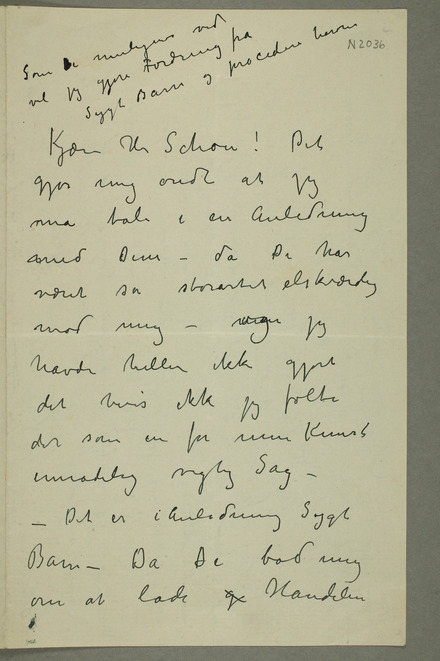 Som De muligens ved
vil jeg gjøre Fordring på
Sygt Barn og procedere herom
N 2036
Kjære Hr Schou! Det
gjør mig ondt at jeg
må tale i en Anledning
med Dem – da De har
været så storartet elskværdig
mod mig – jeg
havde heller ikke gjort
det hvis ikke jeg følte
det som en for min Kunst
umådelig vigtig Sag –
– Det er i Anledning Sygt
Barn – Da De bad mig
om at lade Handelen